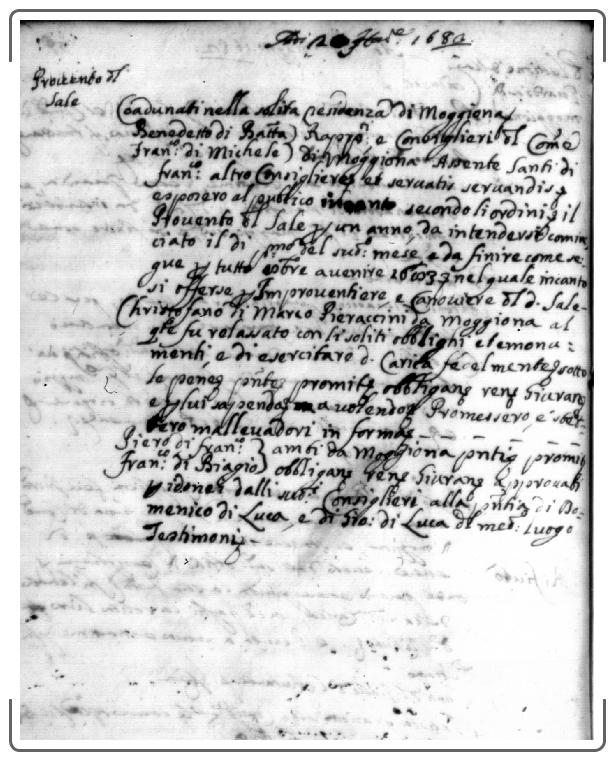 Adi 2 9bre 1682
Provento dl
Sale
Coadunati nella solita residenza di Moggiona
Benedetto di Batta Rappre e Consiglieri dl Come
Franco di Michele di Moggiona Assente Santi di
Franco altro Consigliere et servatis servandis
esposero al publico incanto secondo li ordini il
Provento dl Sale p un anno da intendersi comin
ciato il dì pmo del sudo mese, e da finire come se:
gue p tutto 8bre avenire nel quale incanto
si offerse p Improventiere, e Canoviere dl d. Sale
Christofano di Marco Pieraccini da Moggiona al
qle fu rolassato con li soliti obblighi et emolu:
menti, e di esercitare d. Carica fedelmente sotto
le pene pnte promise obbligans rens giurans
e p lui Promessero, e ster:
bero mallevadori in forma
Piero di Franco ambi da Moggiona pnti promis
Franco di Biagio obbligans rens giurans approvati
p idonei dalli sudi Consiglieri alla pntia di Do:
menico di Luca, e di Gio: di Luca di medo Luogo
Testimoni